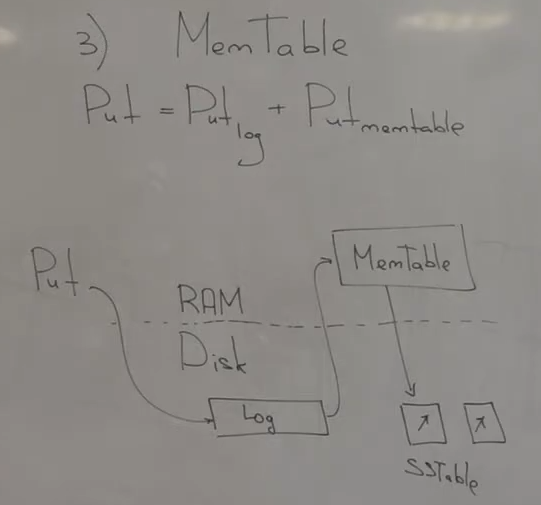 3) MemTable
Put = Put log + Put memtable
MemTable
Put
RAM
Disk
Log
SSTable